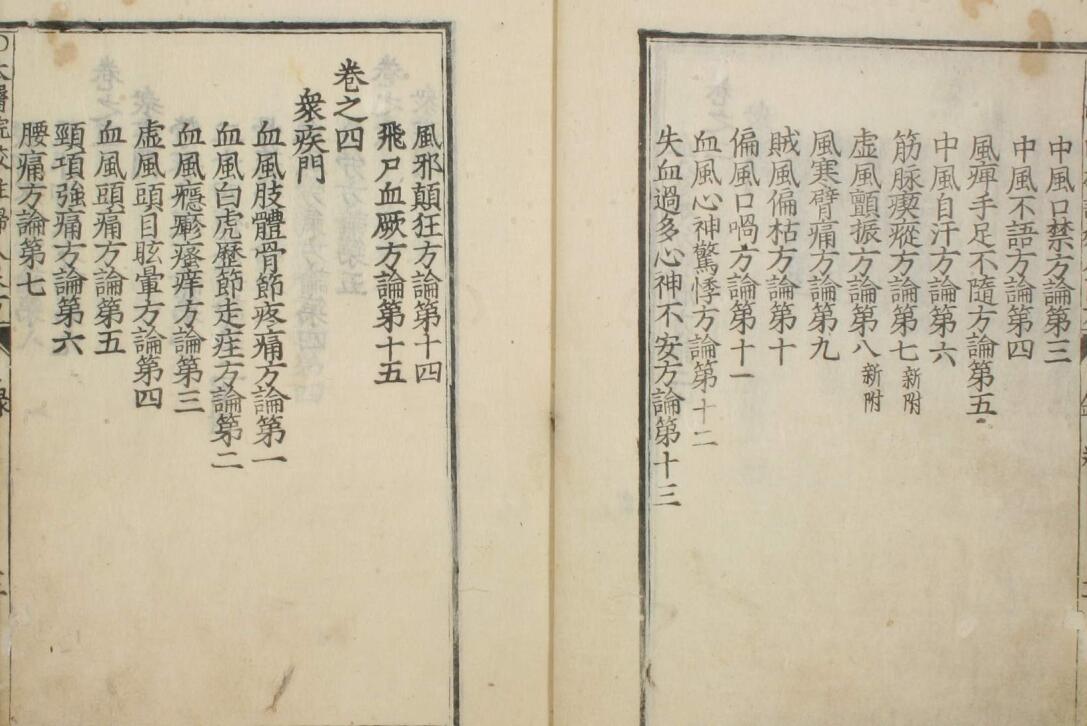 中風口禁方論第三
中風不語方論第四
風痹手足不隨方論第五
中風自汗方論第六
筋脉瘈瘲方論第七 新附
虚風顫振方論第八 新附
風寒臂痛方論第九
賊風偏枯方論第十
偏風口喎方論第十一
血風心神驚悸方論第十二
失血過多心神不安方論第十三
風邪顛狂方論第十四
飛尸血厥方論第十五
卷之四
衆疾門
血風肢體骨節疼痛方論第一
血風白虎歷節走疰方論第二
血風癮疹瘙痒方論第三
虚風頭目眩暈方論第四
血風頭痛方論第五
頸項強痛方論第六
腰痛方論第七